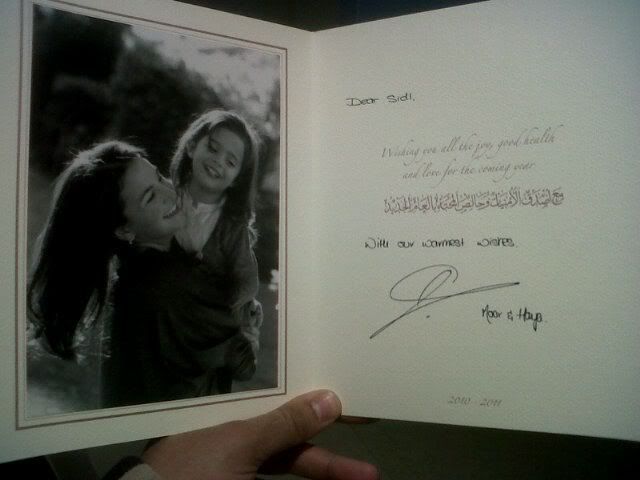 Dear Sidi,
Wishing you all the joy, good health
and love for the coming year
مع أصدق الأمنيات وخالص المحبة بالعام الجديد
With our warmest wishes.
Noor & Haya.
2010 - 2011